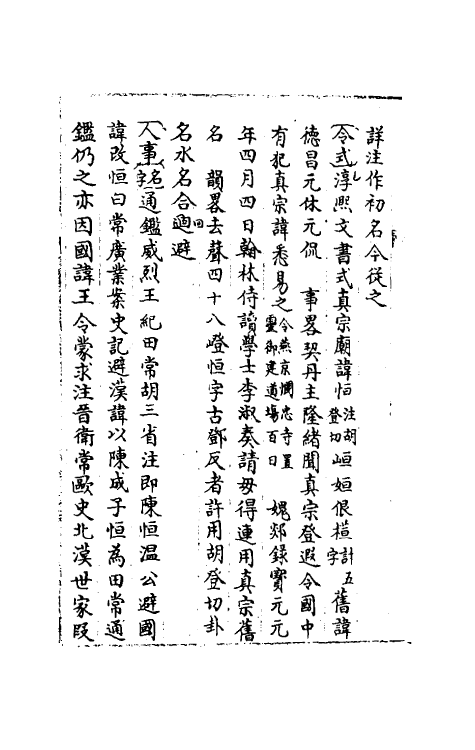 詳注作初名今從之
令式淳熙文書式真宗廟諱恒胡登切注峘姮佷𢛢計五字舊諱
德昌元休元侃　事畧契丹主隆緒聞真宗登遐令國中
有犯真宗諱悉易之令燕京憫忠寺置靈御建道塲百日　媿郯錄寶元元
年四月四日翰林侍讀學士李淑奏請毋得連用真宗舊
名　韻畧去聲四十八嶝恒字古鄧反者許用胡登切卦
名水名合迴避
人事名字通鑑威烈王紀田常胡三省注即陳恒温公避國
諱改恒曰常廣業案史記避漢諱以陳成子恒為田常通
鑑仍之亦因國諱王令蒙求注晉衛常歐史北漢世家段